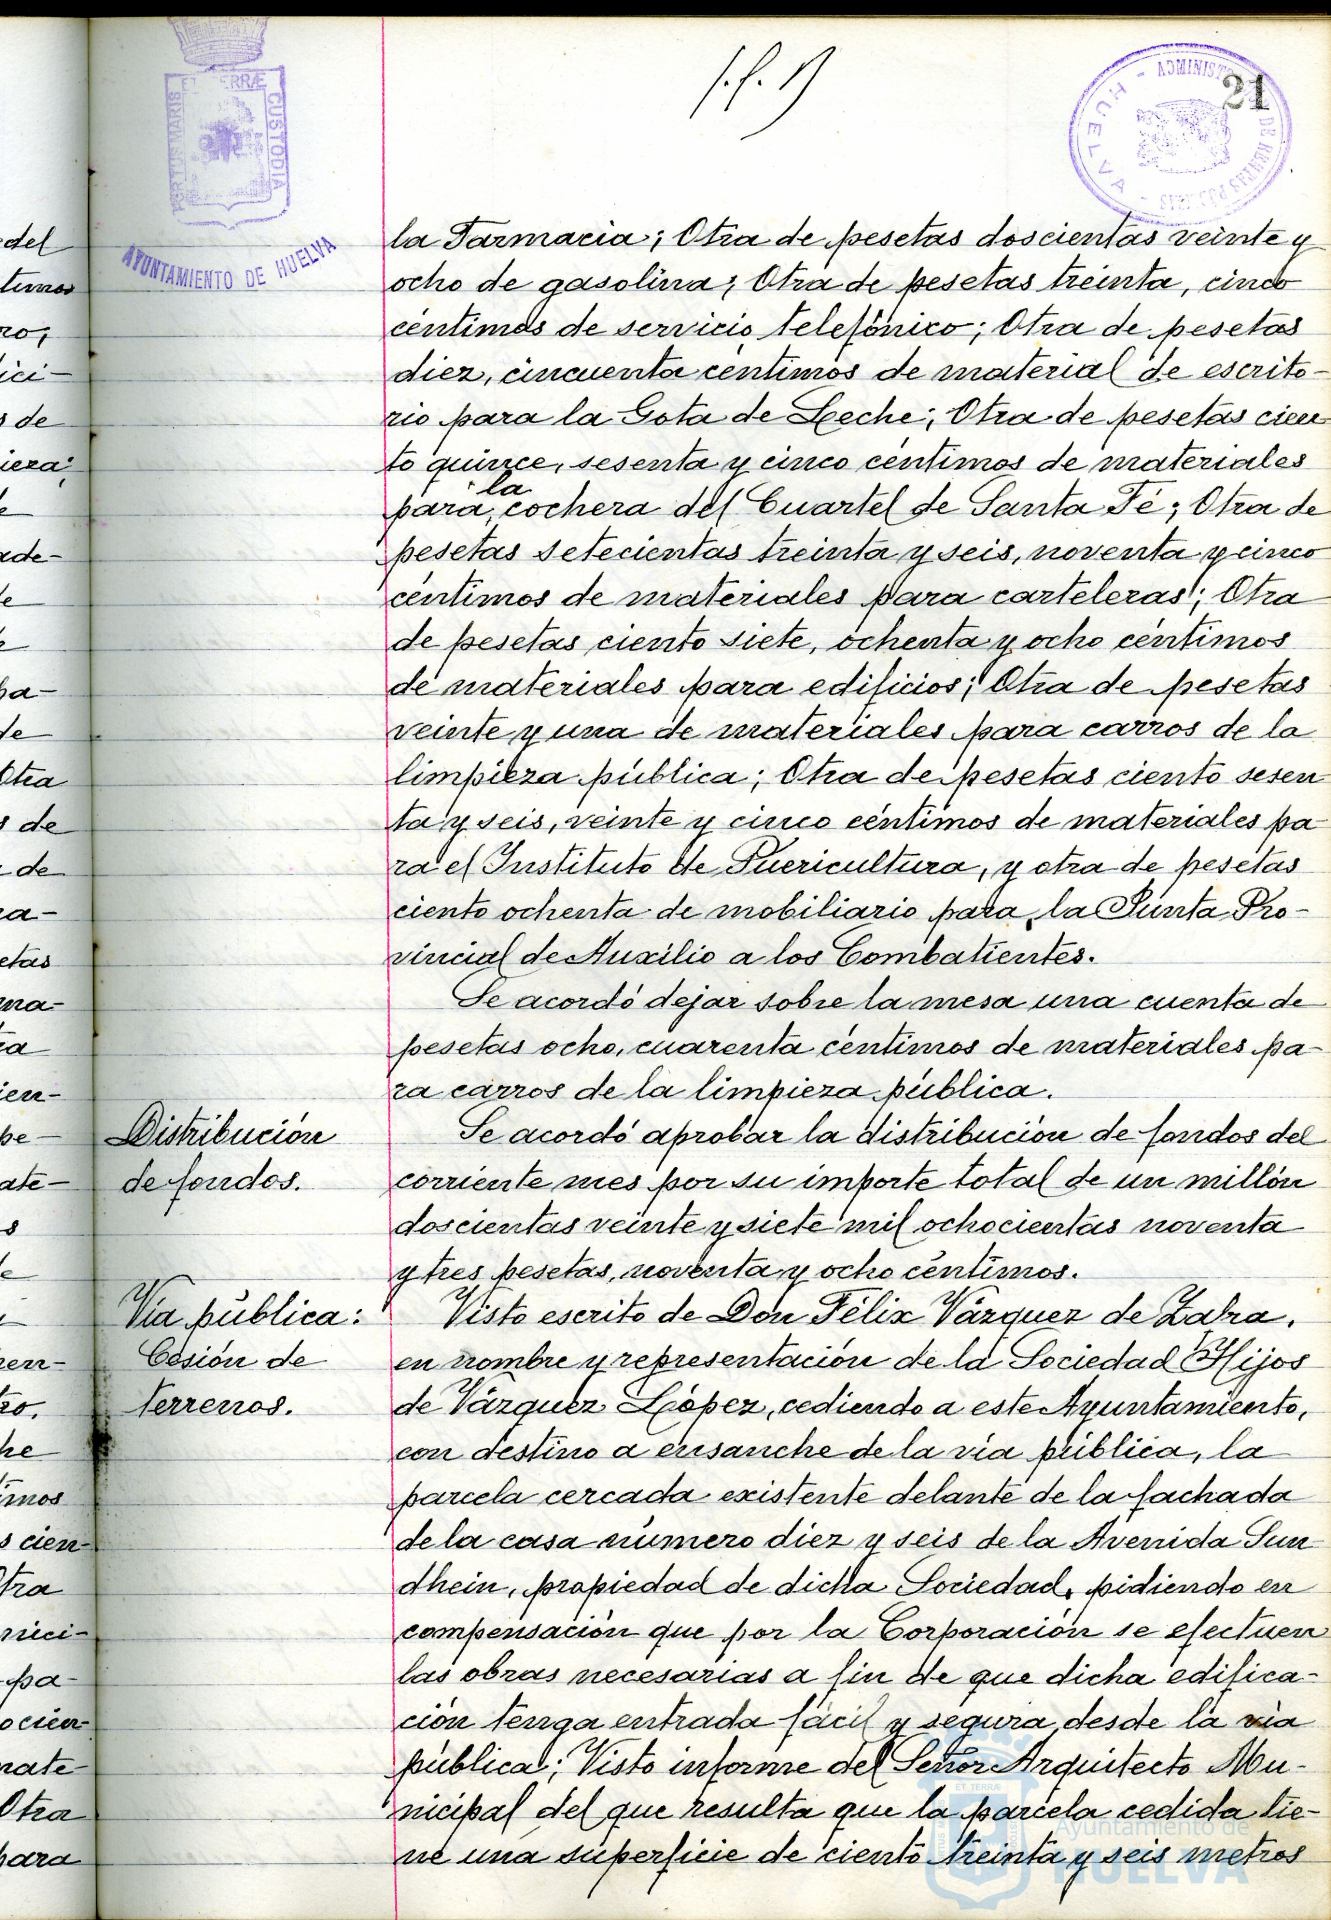 21
PORTUS MARIS ET TERRÆ CUSTODIA
AYUNTAMIENTO DE HUELVA
HUELVA
la Farmacia; Otra de pesetas doscientas veinte y
ocho de gasolina; Otra de pesetas treinta, cinco
céntimos de servicio telefónico; Otra de pesetas
diez, cincuenta céntimos de material de escrito-
rio para la Gota de Leche; Otra de pesetas cien
to quince, sesenta y cinco céntimos de materiales
para la cochera del Cuartel de Santa Fé; Otra de
pesetas setecientas treinta y seis, noventa y cinco
céntimos de materiales para carteleras; Otra
de pesetas ciento siete, ochenta y ocho céntimos
de materiales para edificios; Otra de pesetas
veinte y una de materiales para carros de la
limpieza pública; Otra de pesetas ciento sesen
ta y seis, veinte y cinco céntimos de materiales pa
ra el Instituto de Puericultura, y otra de pesetas
ciento ochenta de mobiliario para la Junta Pro-
vincial de Auxilio a los Combatientes.
Se acordó dejar sobre la mesa una cuenta de
pesetas ocho, cuarenta céntimos de materiales pa-
ra carros de la limpieza pública.
Distribución
de fondos.
Se acordó aprobar la distribución de fondos del
corriente mes por su importe total de un millón
doscientas veinte y siete mil ochocientas noventa
y tres pesetas, noventa y ocho céntimos.
Vía pública:
Cesión de
terrenos.
Visto escrito de Don Félix Vázquez de Zafra,
en nombre y representación de la Sociedad Hijos
de Vázquez López, cediendo a este Ayuntamiento,
con destino a ensanche de la vía pública, la
parcela cercada existente delante de la fachada
de la casa número diez y seis de la Avenida Sun
dhein, propiedad de dicha Sociedad, pidiendo en
compensación que por la Corporación se efectuen
las obras necesarias a fin de que dicha edifica-
ción tenga entrada fácil y segura desde la vía
pública; Visto informe del Señor Arquitecto Mu-
nicipal del que resulta que la parcela cedida tie-
ne una superficie de ciento treinta y seis metros
Ayuntamiento de
HUELVA